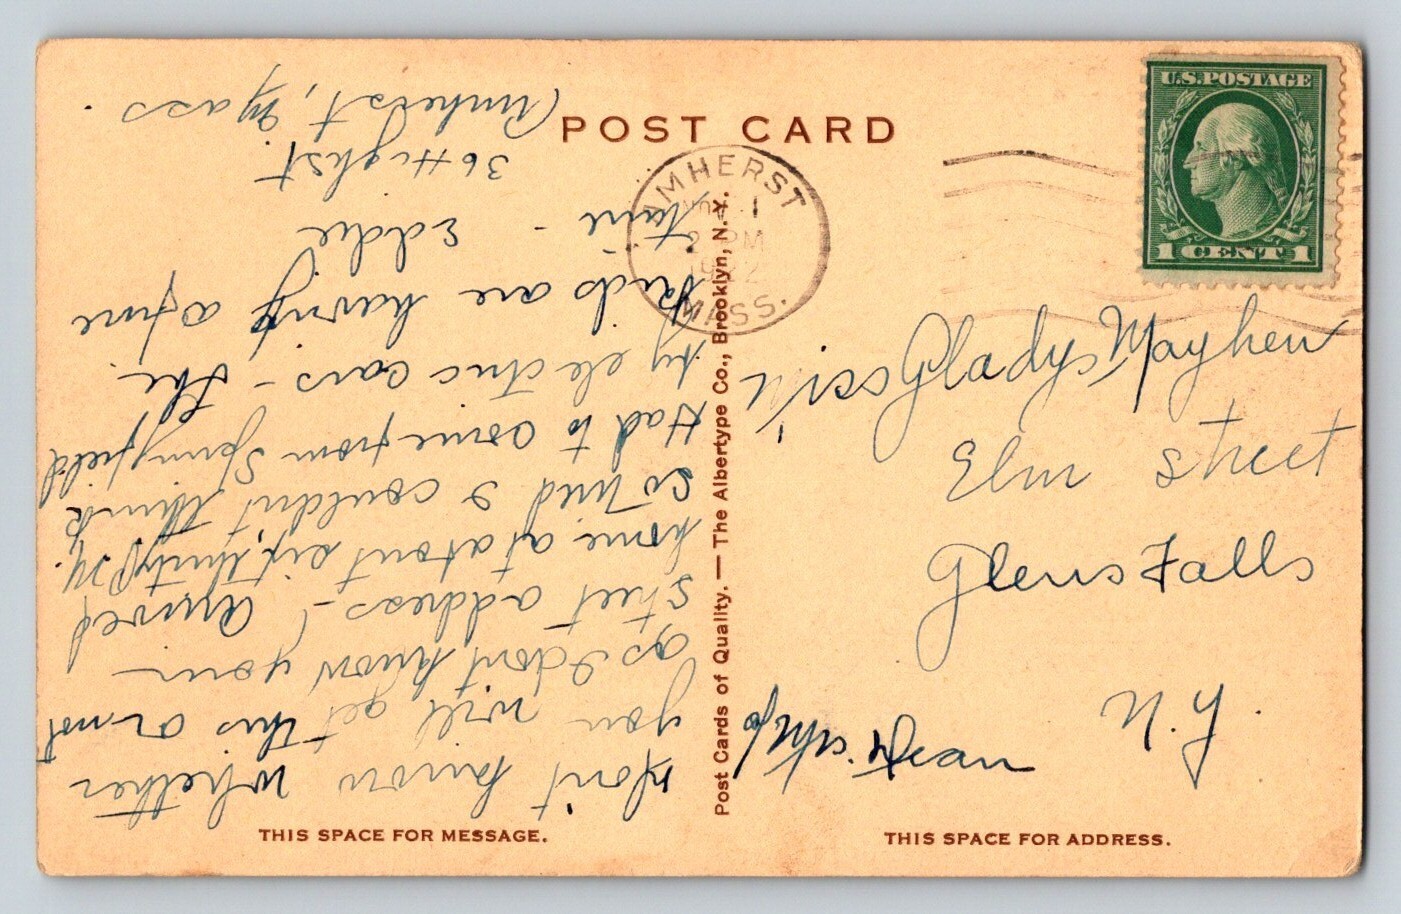 POST CARD
U.S. POSTAGE
1 CENT 1
AMHERST
NOV 1
2 PM
1922
MASS.
Don't know whether
you will get this or not
as I don't know your
street address - Arrived
home at about six thirty P.M.
So tired I couldn't think
Had to come from Springfield
by electric cars - The
kids are having a fine
time - Eddie
36 High St.
Amherst, Mass
Post Cards of Quality. — The Albertype Co., Brooklyn, N.Y.
Miss Gladys Mayhew
Elm Street
Glens Falls
N.Y.
c/o Mrs. Dean
THIS SPACE FOR MESSAGE.
THIS SPACE FOR ADDRESS.